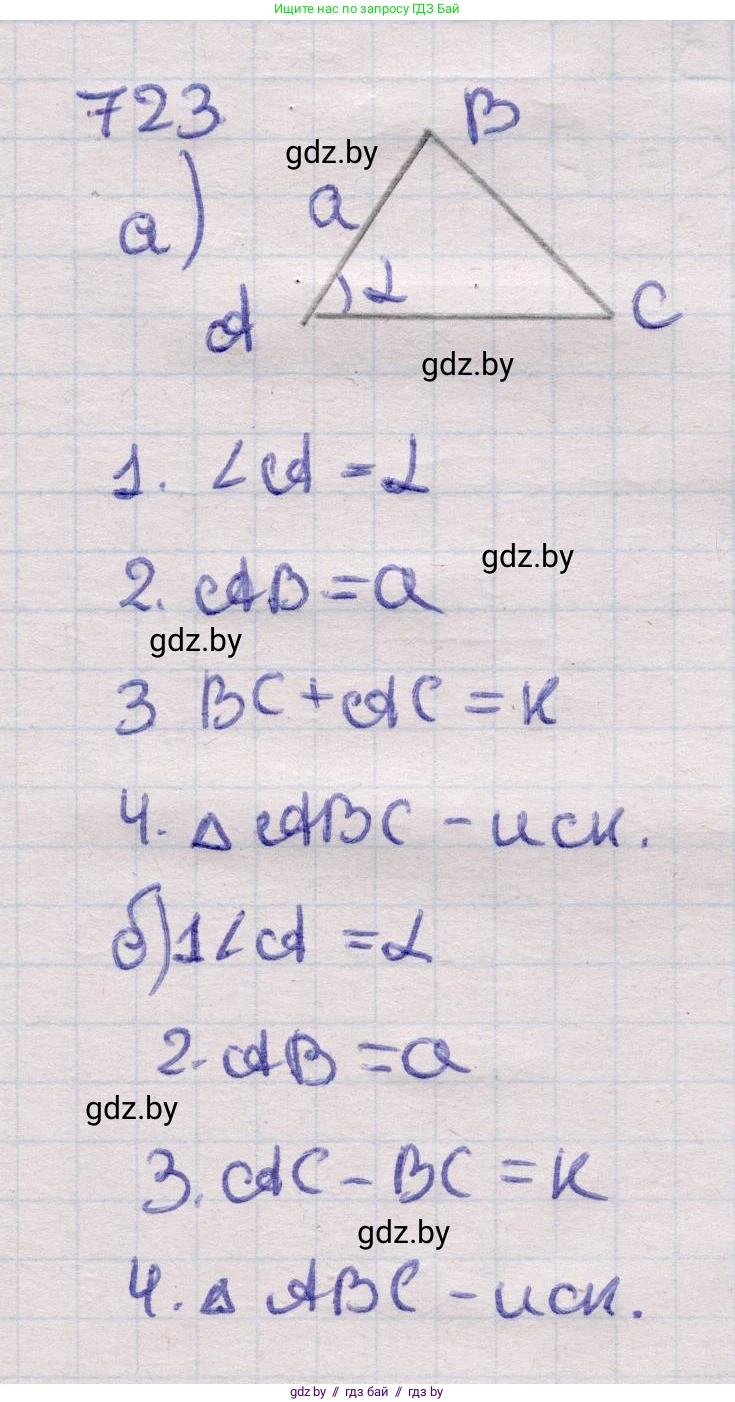 Ищите нас по запросу ГДЗ Бай
723
B
gdz.by
а)
a
α
A
C
gdz.by
1. ∠A = α
gdz.by
2. AB = a
gdz.by
3 BC + AC = к
4. △ ABC - иск.
б) 1 ∠A = α
2. AB = a
gdz.by
3. AC - BC = к
gdz.by
4. △ ABC - иск.
gdz by // гдз бай // gdz by